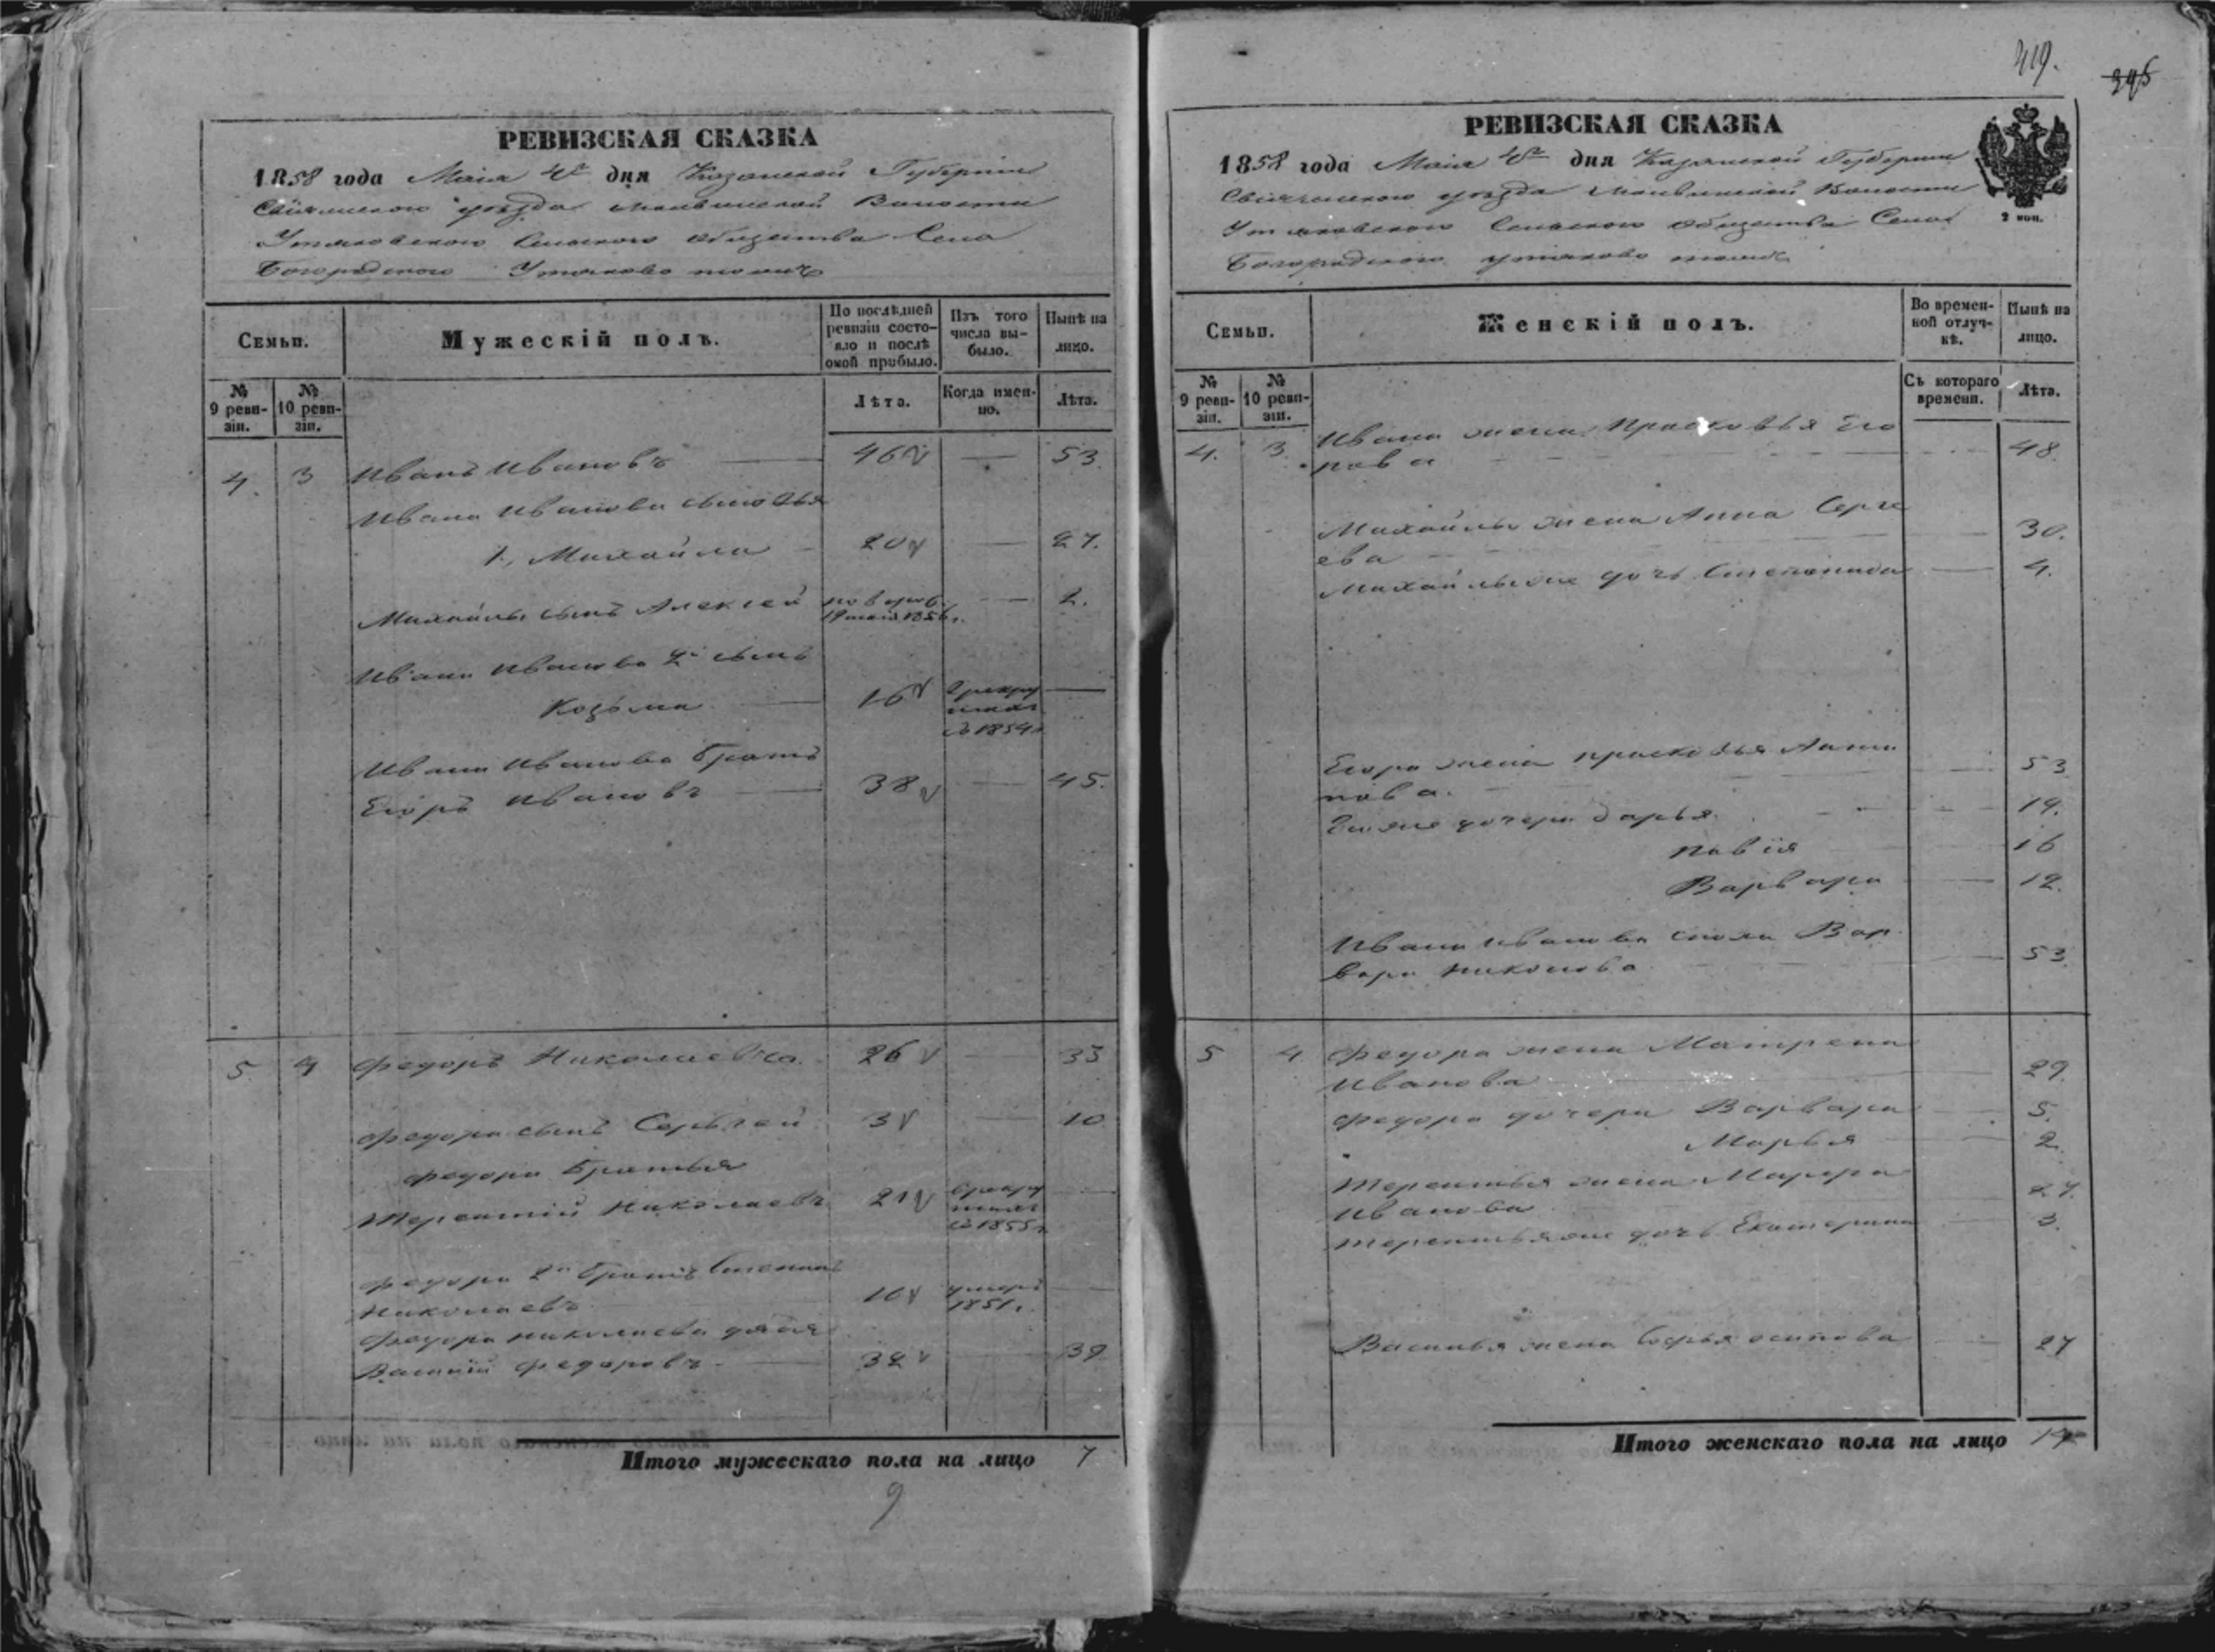 419.
395
РЕВИЗСКАЯ СКАЗКА
1858 года Маія 4го дня Казанской Губерніи
Свіяжскаго уѣзда Волости
Утяковскаго Сельскаго Общества Села
Богородского Утяково тожъ
Семьи.
Мужескій полъ.
По послѣдней ревизіи состояло и послѣ оной прибыло.
Изъ того числа выбыло.
Нынѣ на лицо.
№ 9 ревизіи.
№ 10 ревизіи.
Лѣта.
Когда именно.
Лѣта.
4. 3 Иванъ Ивановъ 46 53.
Ивана Иванова сыновья
1, Михайла 20 27.
Михайлы сынъ Алексей новорож. 2.
1856г.
Ивана Иванова 2й сынъ
Козьма 16 В рекру
тахъ
съ 1854г
Ивана Иванова братъ
Егоръ Ивановъ 38 45.
5. 4 Федоръ Николаевъ 26 33
Федора сынъ Сергей 3 10
Федора братья
Терентій Николаевъ 21 В рекру
тахъ
съ 1855г.
Федора 2й братъ Степанъ
Николаевъ 10 умеръ
1851г.
Федора Николаева дядя
Василій Федоровъ 32 39
Итого мужескаго пола на лицо 7
9
РЕВИЗСКАЯ СКАЗКА
2 коп.
1858 года Маія 4го дня Казанской Губерніи
Свіяжскаго уѣзда Волости
Утяковскаго Сельскаго Общества Села
Богородского Утяково тожъ
Семьи.
Женскій полъ.
Во временной отлучкѣ.
Нынѣ на лицо.
№ 9 ревизіи.
№ 10 ревизіи.
Съ котораго времени.
Лѣта.
4. 3. Ивана жена Прасковья Его
рова 48.
Михайлы жена Анна Серге
ева 30.
Михайлы дочь Степанида 4.
Егора жена Прасковья Анти
пова. 53
Его же дочери Дарья 19.
16
Варвара 12.
Ивана Иванова сноха Вар
вара Никонова 53.
5 4 Федора жена Матрена
Иванова 29.
Федора дочери Варвара 5.
Марья 2.
Терентья жена Марфа
Иванова 27.
Терентья же дочь Екатерина 3.
Василья жена Софья Осипова 27
Итого женскаго пола на лицо 14